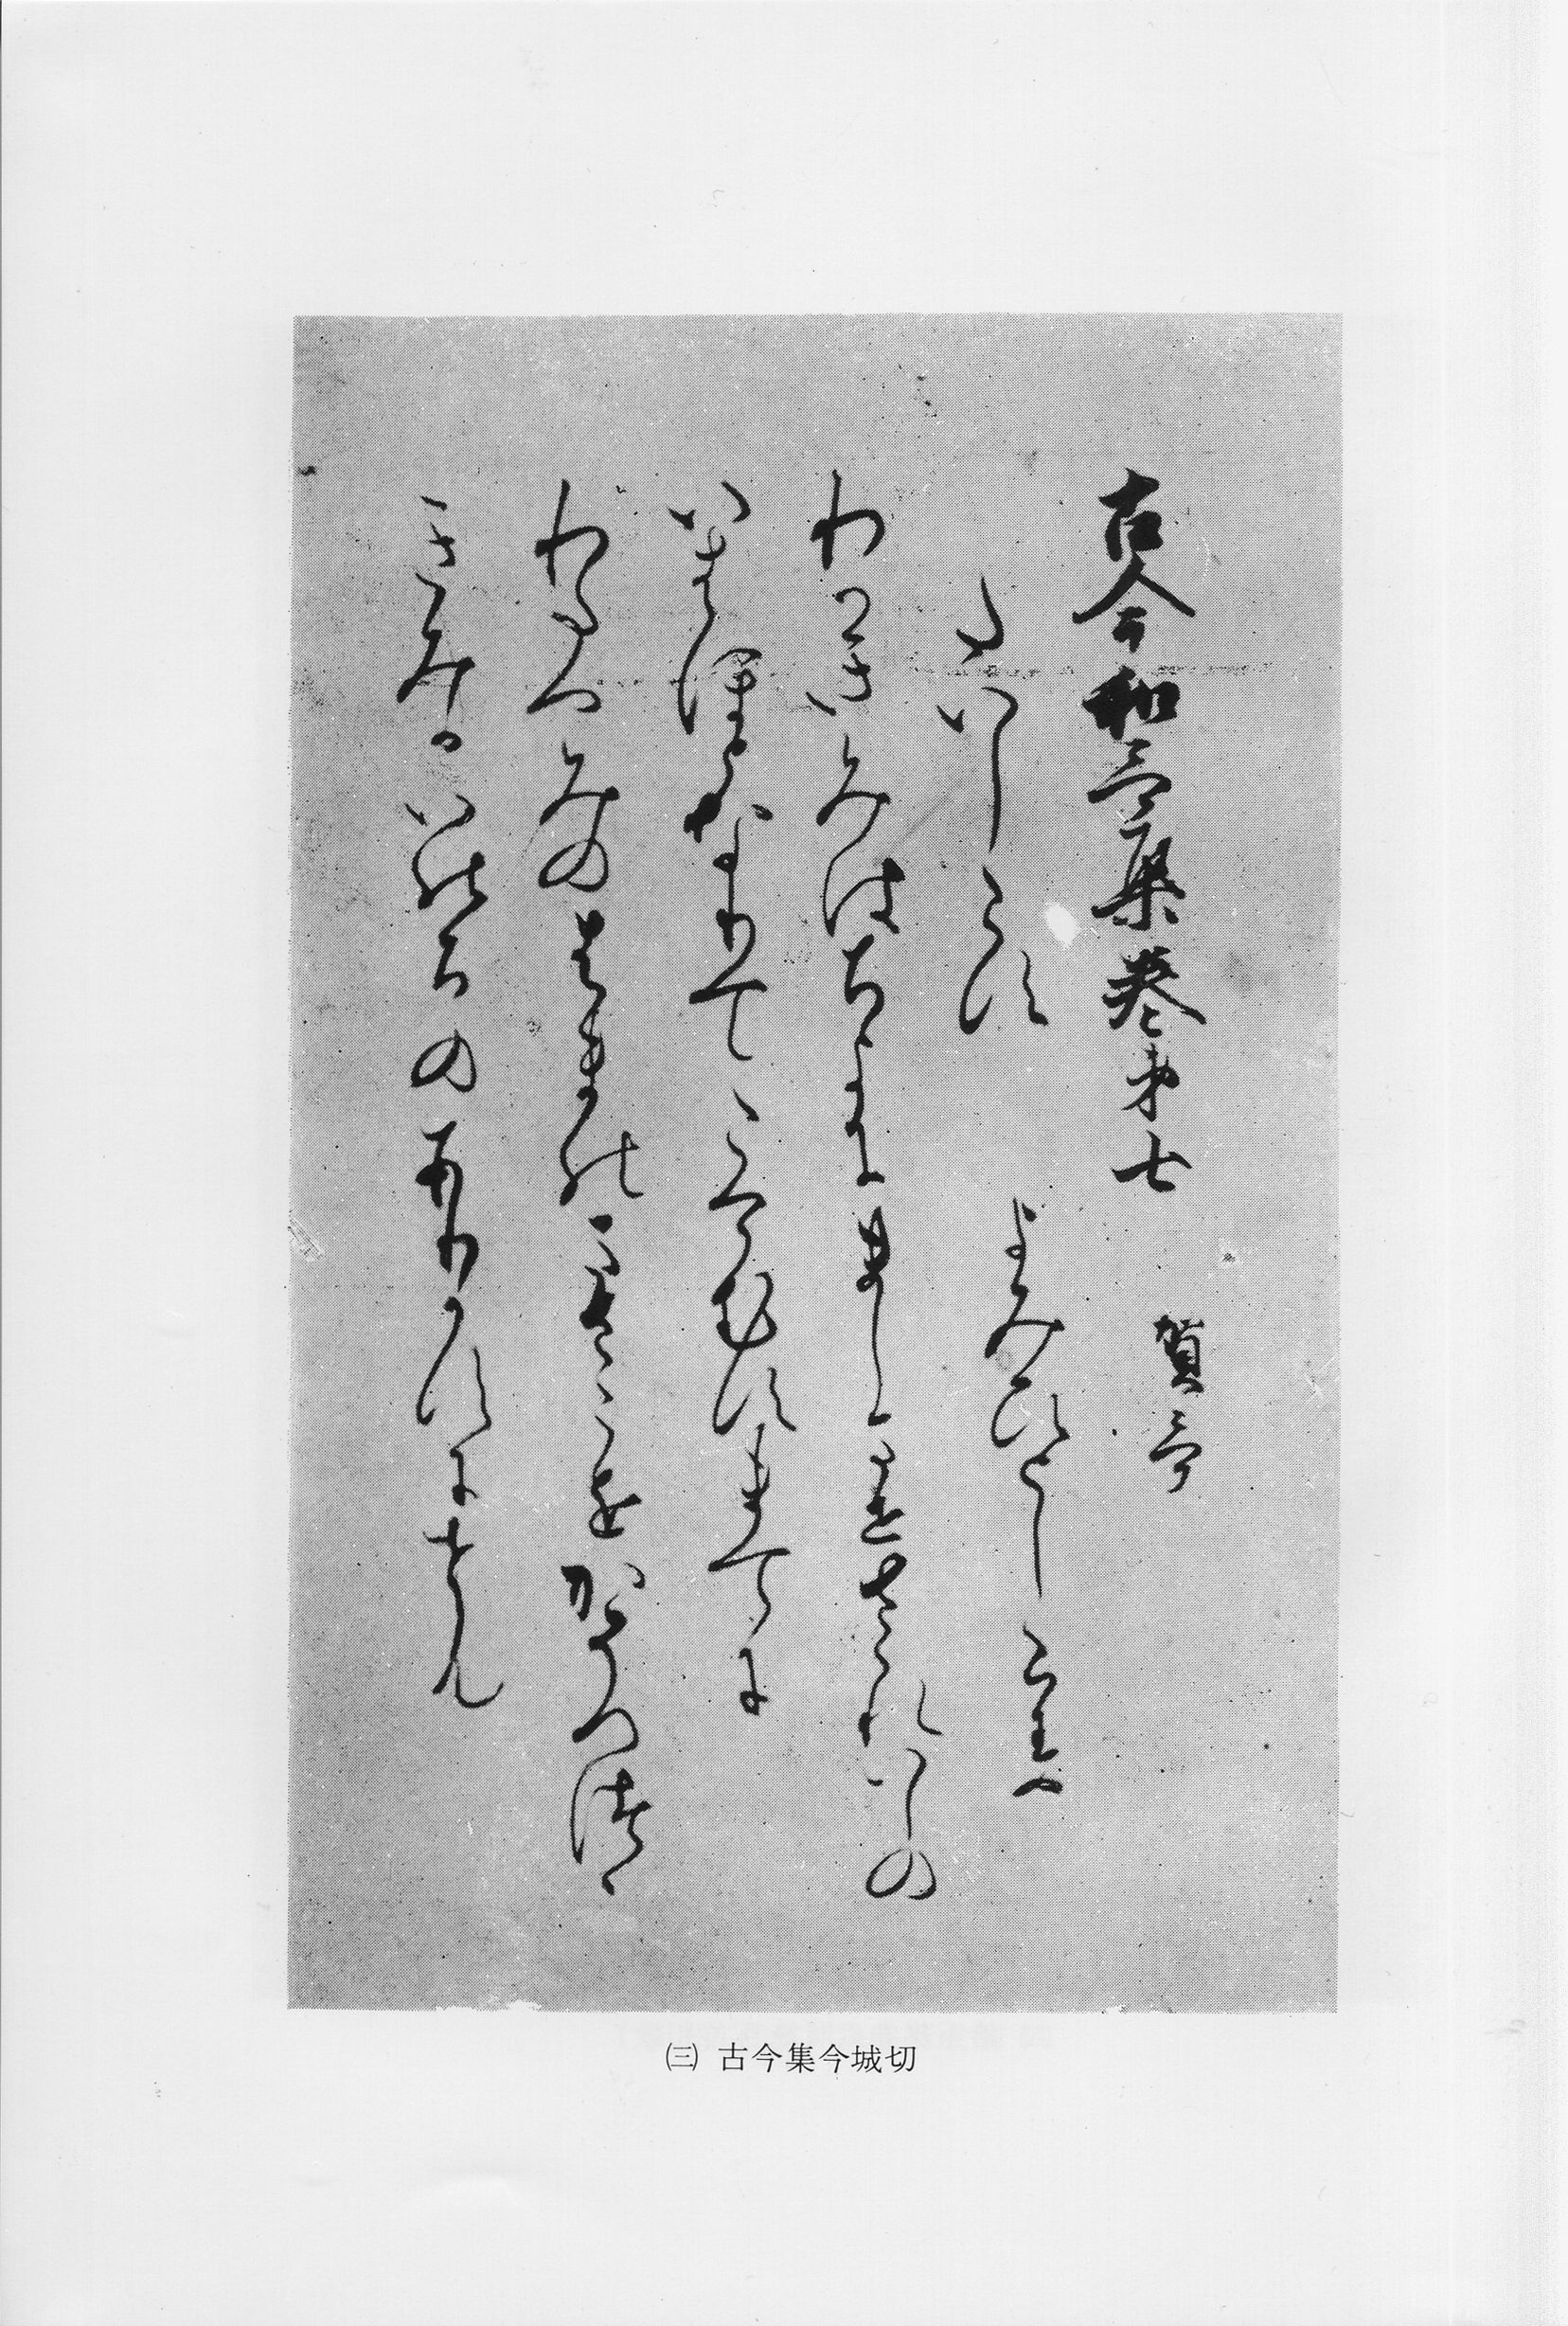 古今和哥集巻第七　賀哥
たいしらす　よみひとしらす
わかきみはちよにましませさゝれいしの
いはほとなりてこけむすまてに
わたつみのはまのまさこをかそへつゝ
きみかいのちのありかすにせん
㈢ 古今集今城切